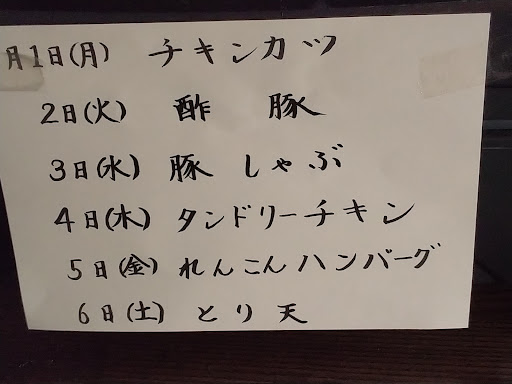 月1日(月) チキンカツ
2日(火) 酢豚
3日(水) 豚しゃぶ
4日(木) タンドリーチキン
5日(金) れんこんハンバーグ
6日(土) とり天